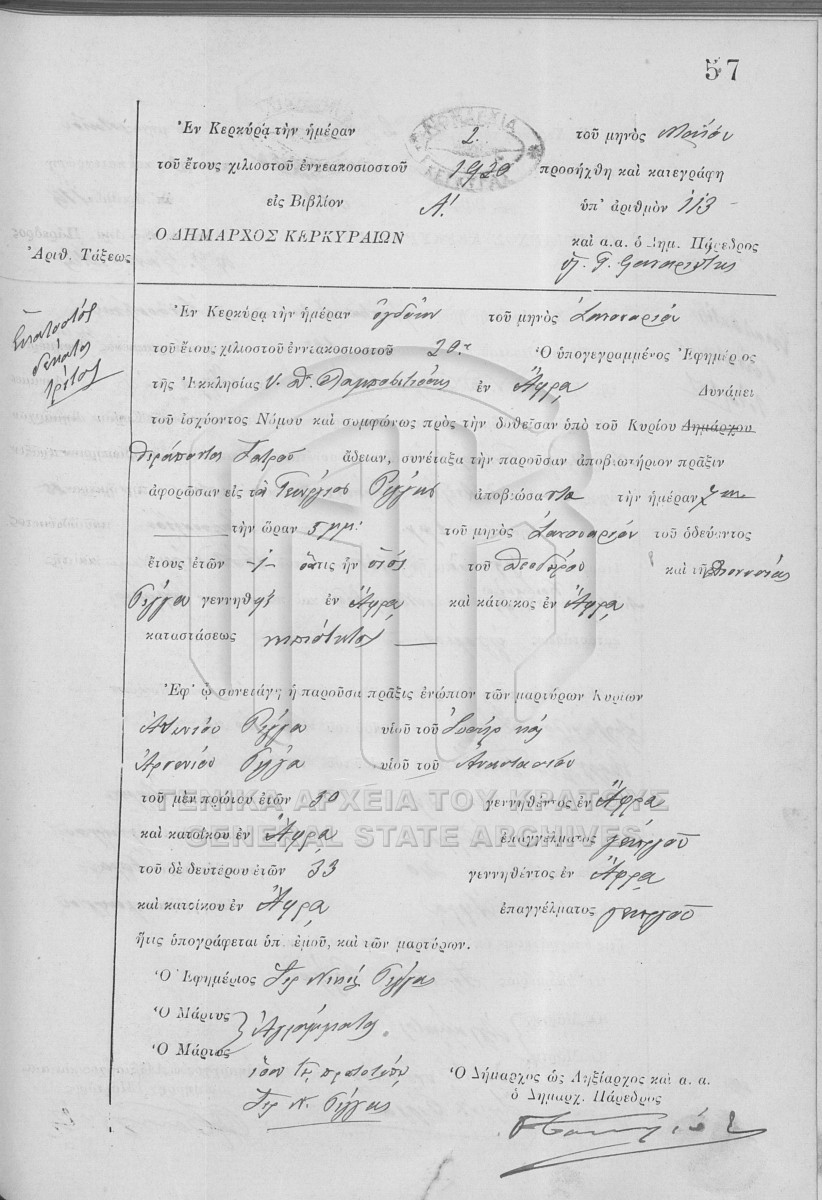 57
Ἐν Κερκύρᾳ τὴν ἡμέραν 2. τοῦ μηνὸς Μαΐου
τοῦ ἔτους χιλιοστοῦ ἐννεακοσιοστοῦ 1920 προσήχθη καὶ κατεγράφη
εἰς Βιβλίον Α΄. ὑπ' ἀριθμὸν 113
Ο ΔΗΜΑΡΧΟΣ ΚΕΡΚΥΡΑΙΩΝ καὶ α.α. ὁ Δημ. Πάρεδρος
Ἀριθ. Τάξεως
Ἑκατοστός
δέκατος
τρίτος
Ἐν Κερκύρᾳ τὴν ἡμέραν ὀγδόην τοῦ μηνὸς Ἰανουαρίου
τοῦ ἔτους χιλιοστοῦ ἐννεακοσιοστοῦ 20. Ὁ ὑπογεγραμμένος Ἐφημέριος
τῆς Ἐκκλησίας Υ. Θ. ἐν Ἄφρᾳ Δυνάμει
τοῦ ἰσχύοντος Νόμου καὶ συμφώνως πρὸς τὴν δοθεῖσαν ὑπὸ τοῦ Κυρίου Δημάρχου
θεράποντος Ἰατροῦ ἄδειαν, συνέταξα τὴν παροῦσαν ἀποβιωτήριον πρᾶξιν
ἀφορῶσαν εἰς τὸν Γεώργιον ἀποβιώσαντα τὴν ἡμέραν 7
τὴν ὥραν 5 μ.μ. τοῦ μηνὸς Ἰανουαρίου τοῦ ὁδεύοντος
ἔτους ἐτῶν ὅστις ἦν υἱὸς τοῦ Θεοδώρου καὶ τῆς Διονυσίας
Ρίγγα γεννηθεὶς ἐν Ἄφρᾳ καὶ κάτοικος ἐν Ἄφρᾳ
καταστάσεως νηπιότητος
Ἐφ' ᾧ συνετάγη ἡ παροῦσα πρᾶξις ἐνώπιον τῶν μαρτύρων Κυρίων
Ρίγγα υἱοῦ τοῦ Σπύρ καὶ
Ἀρσενίου Ρίγγα υἱοῦ τοῦ Ἀναστασίου
τοῦ μὲν πρώτου ἐτῶν 30 γεννηθέντος ἐν Ἄφρᾳ
ΓΕΝΙΚΑ ΑΡΧΕΙΑ ΤΟΥ ΚΡΑΤΟΥΣ
GENERAL STATE ARCHIVES
καὶ κατοίκου ἐν Ἄφρᾳ ἐπαγγέλματος γεωργοῦ
τοῦ δὲ δευτέρου ἐτῶν 33 γεννηθέντος ἐν Ἄφρᾳ
καὶ κατοίκου ἐν Ἄφρᾳ ἐπαγγέλματος γεωργοῦ
ἥτις ὑπογράφεται ὑπ' ἐμοῦ, καὶ τῶν μαρτύρων.
Ὁ Ἐφημέριος Ἱερ Ρίγγας
Ὁ Μάρτυς
Ἀγράμματοι
Ὁ Μάρτυς
ἴσον τῷ πρωτοτύπῳ
Ἱερ Ν. Ρίγγας
Ὁ Δήμαρχος ὡς Ληξίαρχος καὶ α. α.
ὁ Δημαρχ. Πάρεδρος